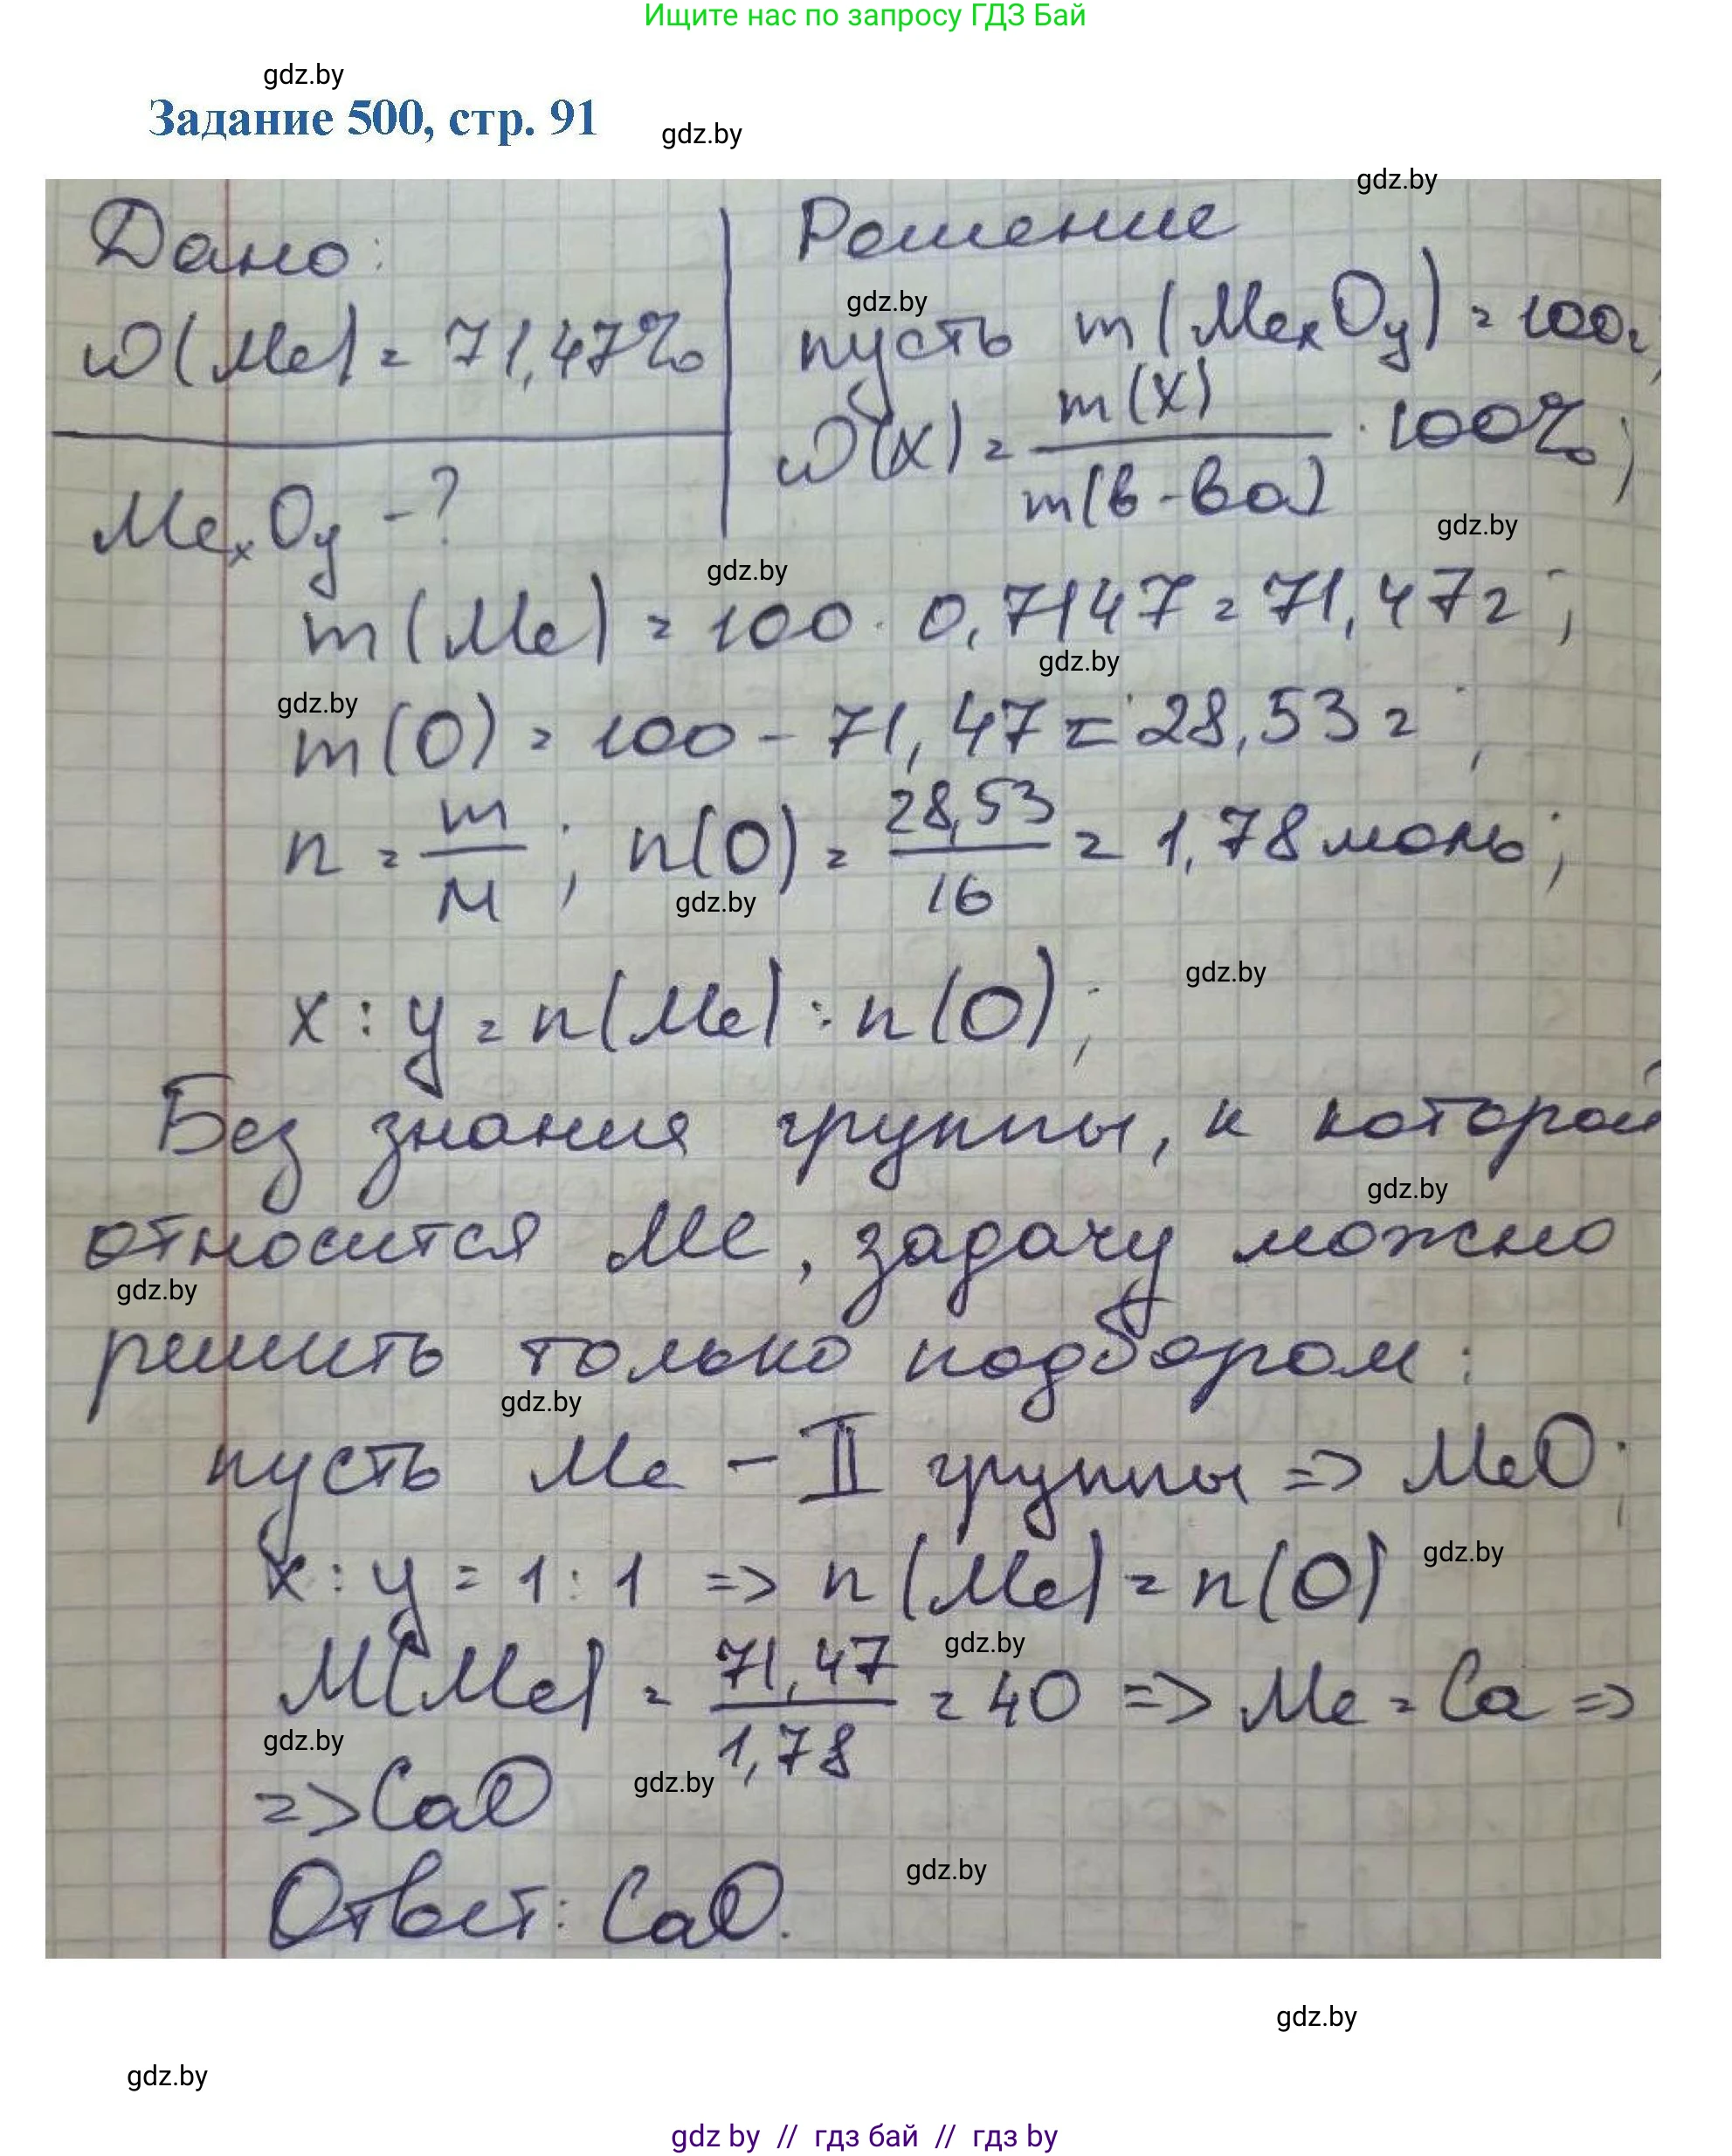 Ищите нас по запросу ГДЗ Бай
gdz.by
Задание 500, стр. 91
gdz.by
gdz.by
Дано:
Решение
ω(Me) = 71,47%
gdz.by
пусть m(MexOy) = 100г;
ω(x) = m(x) / m(в-ва) · 100%;
MexOy - ?
gdz.by
gdz.by
m(Me) = 100 · 0,7147 = 71,47г;
gdz.by
gdz.by
m(O) = 100 - 71,47 = 28,53г;
n = m / M; n(O) = 28,53 / 16 = 1,78 моль;
gdz.by
gdz.by
x : y = n(Me) : n(O);
Без знания группы, к которой
gdz.by
относится Me, задачу можно
gdz.by
решить только подбором:
gdz.by
пусть Me - II группы => MeO;
gdz.by
x : y = 1 : 1 => n(Me) = n(O)
gdz.by
M(Me) = 71,47 / 1,78 = 40 => Me = Ca =>
gdz.by
gdz.by
=> CaO
gdz.by
Ответ: CaO.
gdz.by
gdz.by
gdz by // гдз бай // гдз by